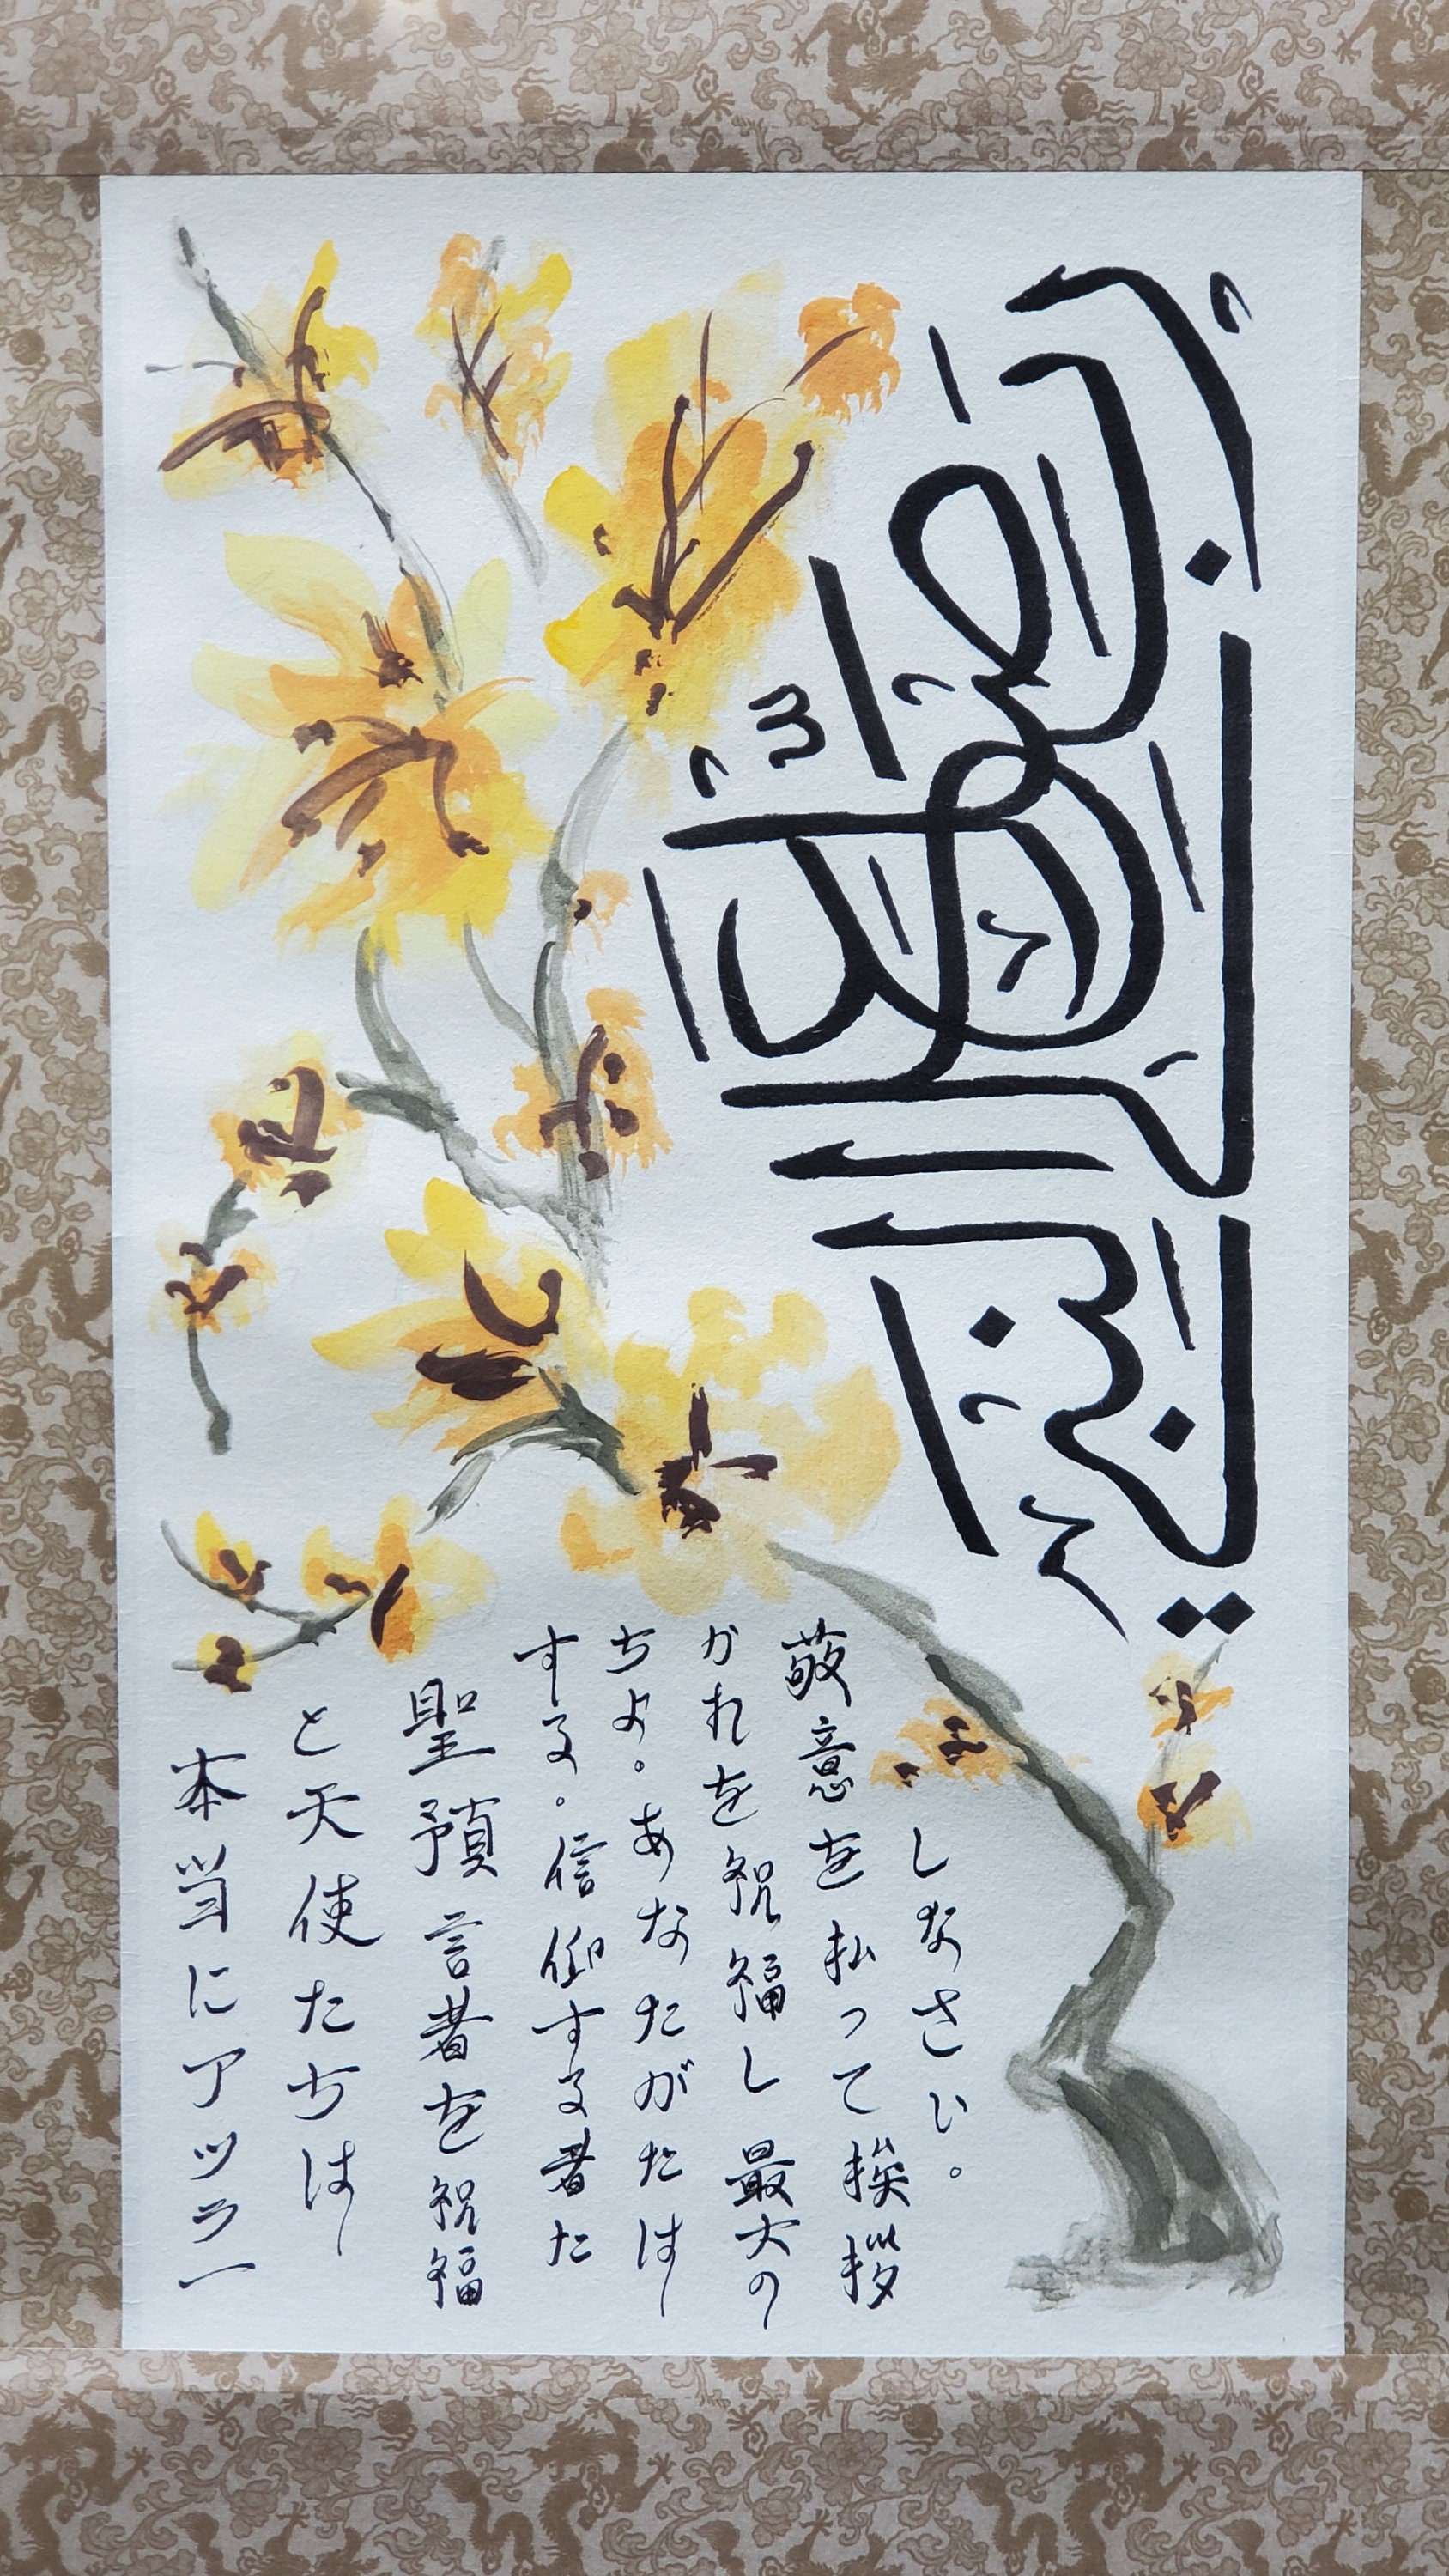 على النبي
本当にアッラー
と天使たちは
聖預言者を祝福
する。信仰する者た
ちよ。あなたがたは
かれを祝福し最大の
敬意を払って挨拶
しなさい。